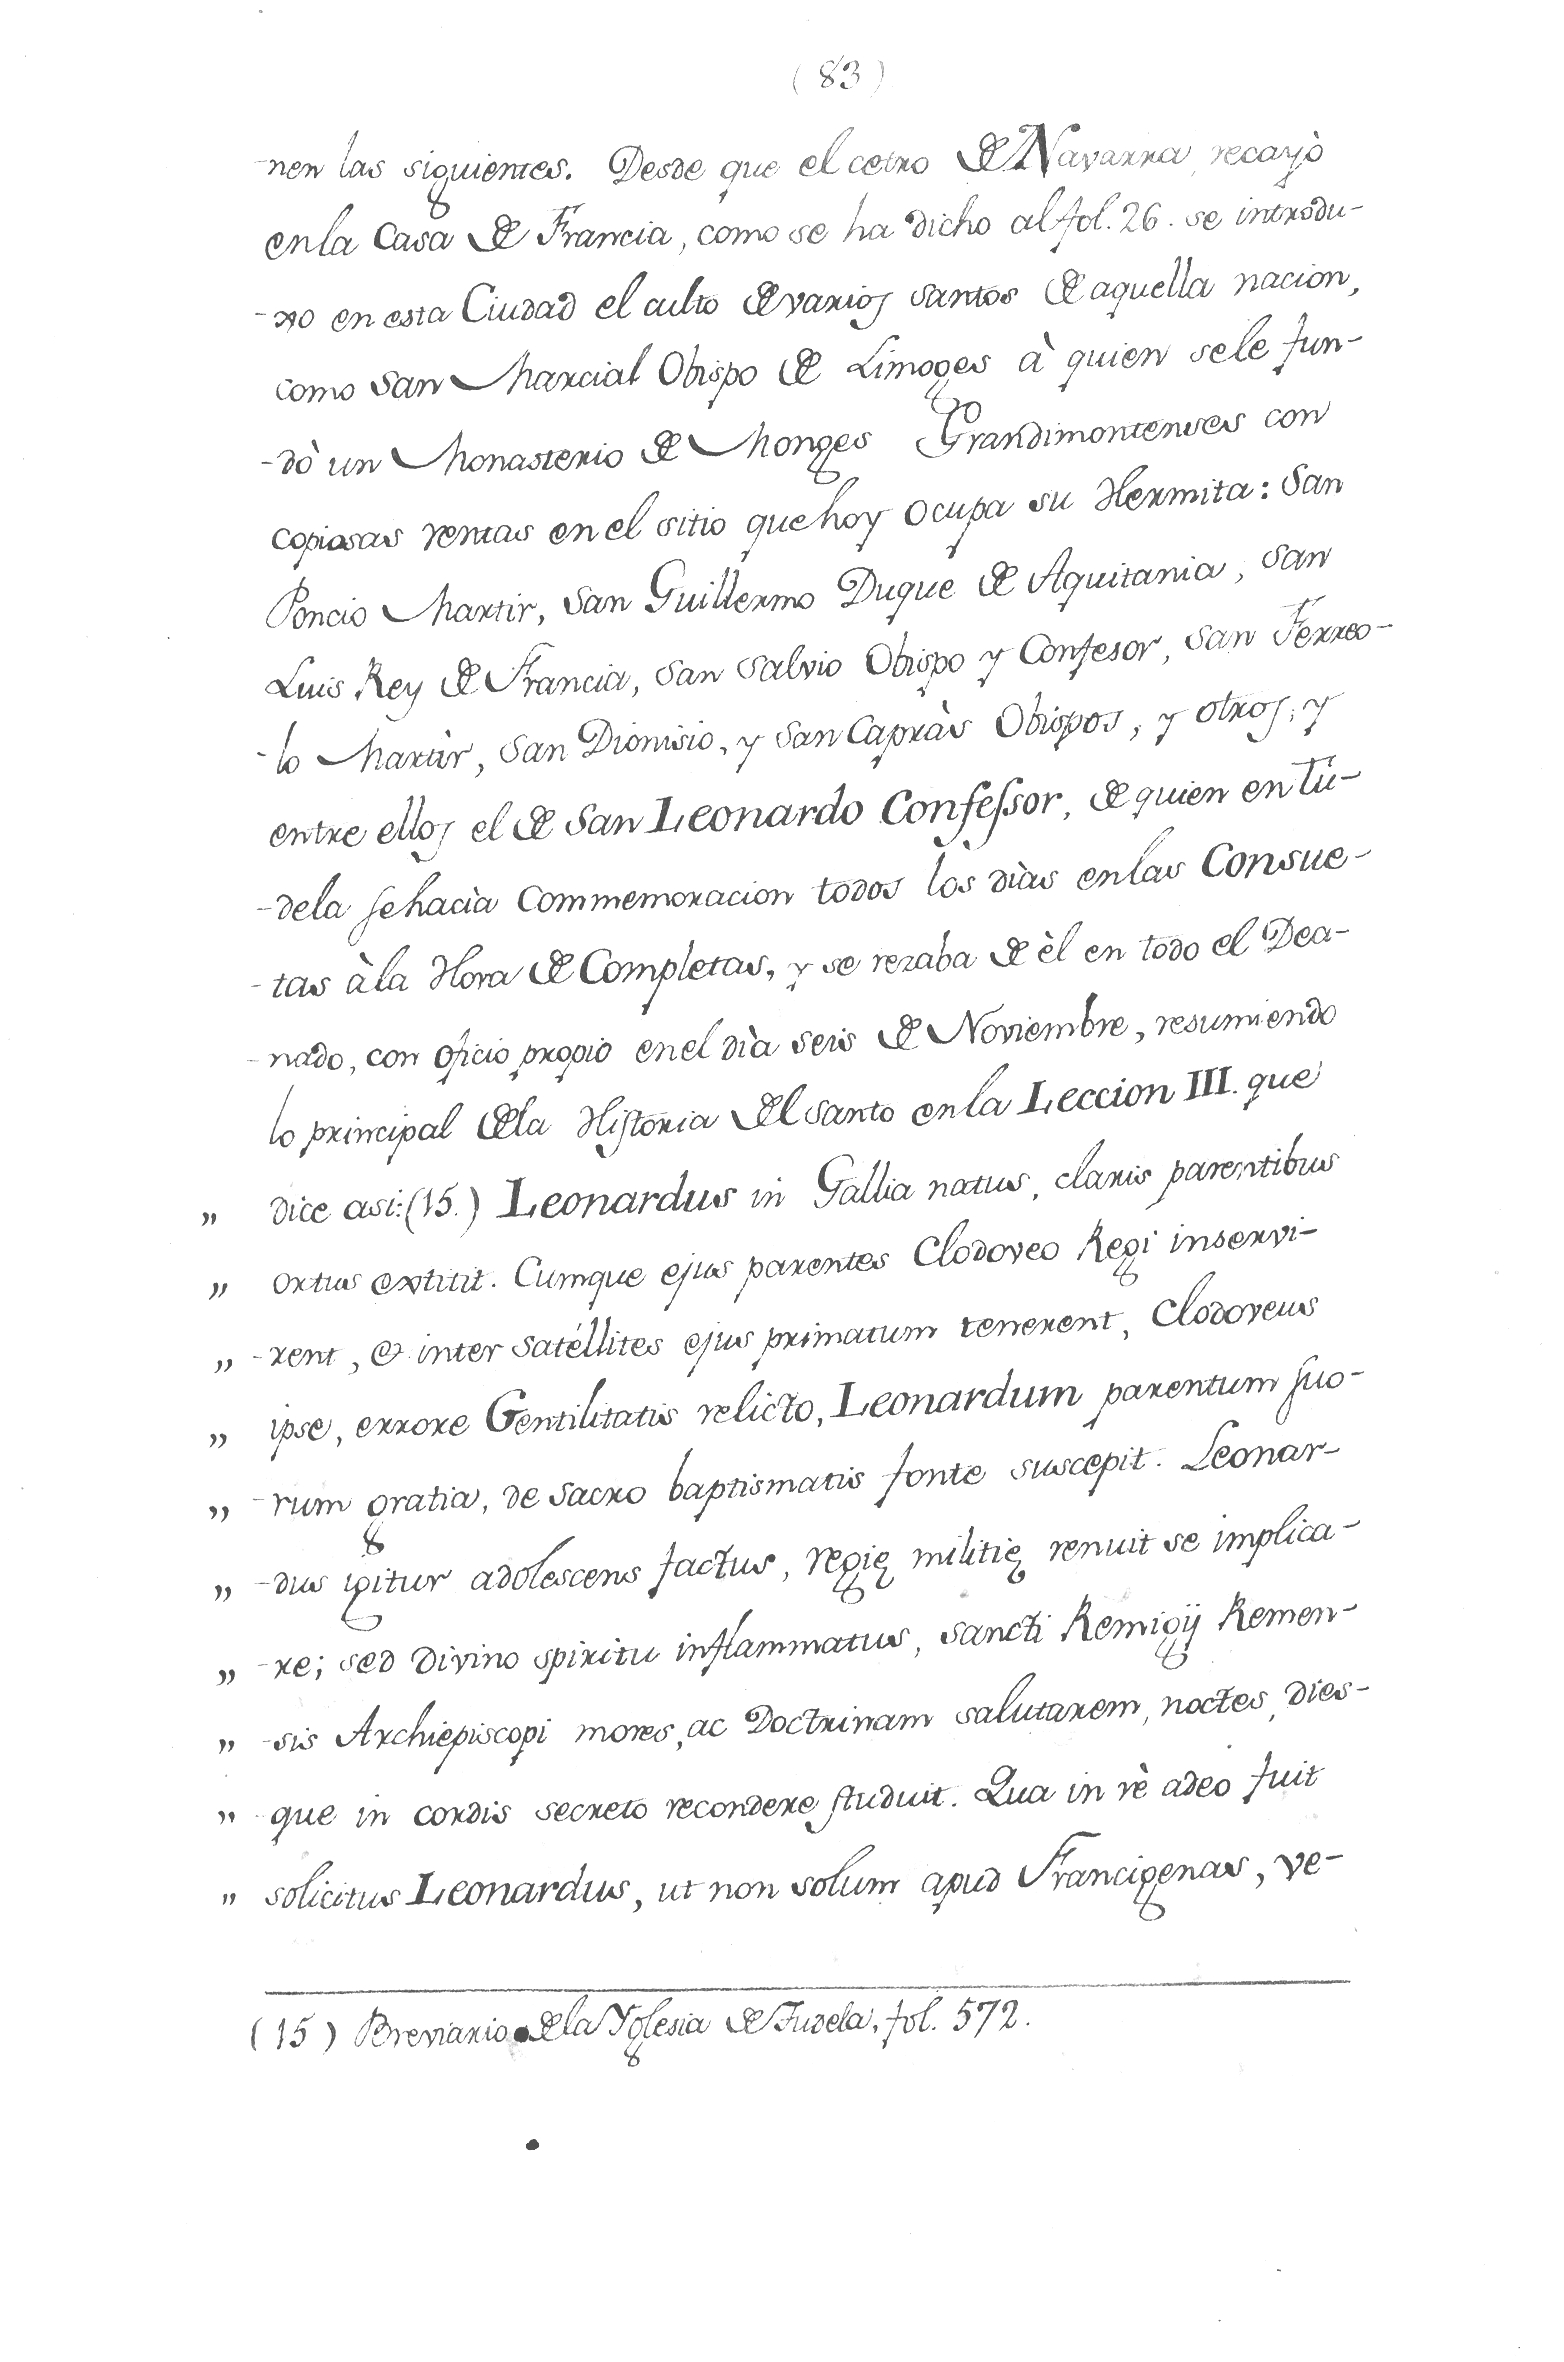 (83)
-nen las siguientes. Desde que el cetro de Navarra recayò
en la Casa de Francia, como se ha dicho al fol. 26. se introdu-
-xo en esta Ciudad el culto de varios Santos de aquella nacion,
como San Marcial Obispo de Limoges à quien se le fun-
-dò un Monasterio de Monges Grandimontenses con
copiosas rentas en el sitio que hoy ocupa su Hermita: San
Poncio Martir, San Guillermo Duque de Aquitania, San
Luis Rey de Francia, San Salvio Obispo y Confesor, San Ferreo-
-lo Martir, San Dionisio, y San Capràs Obispos, y otros, y
entre ellos el de San Leonardo Confessor, de quien en Tu-
-dela se hacìa Commemoracion todos los dìas en las Consue-
-tas à la Hora de Completas, y se rezaba de èl en todo el Dea-
-nado, con oficio propio en el dìa seis de Noviembre, resumiendo
lo principal de la Historia del Santo en la Leccion III. que
„ dice asi: (15.) Leonardus in Gallia natus, claris parentibus
„ ortus extitit. Cumque ejus parentes Clodoveo Regi inservi-
„ -rent, & inter satéllites ejus primatum tenerent, Clodoveus
„ ipse, errore Gentilitatis relicto, Leonardum parentum suo-
„ -rum gratia, de sacro baptismatis fonte suscepit. Leonar-
„ -dus igitur adolescens factus, regię militię renuit se implica-
„ -re; sed Divino spiritu inflammatus, sancti Remigij Remen-
„ -sis Archiepiscopi mores, ac Doctrinam salutarem, noctes, dies-
„ -que in cordis secreto recondere studuit. Qua in rè adeo fuit
„ solicitus Leonardus, ut non solum apud Francigenas, ve-
(15) Breviario de la Yglesia de Tudela, fol. 572.